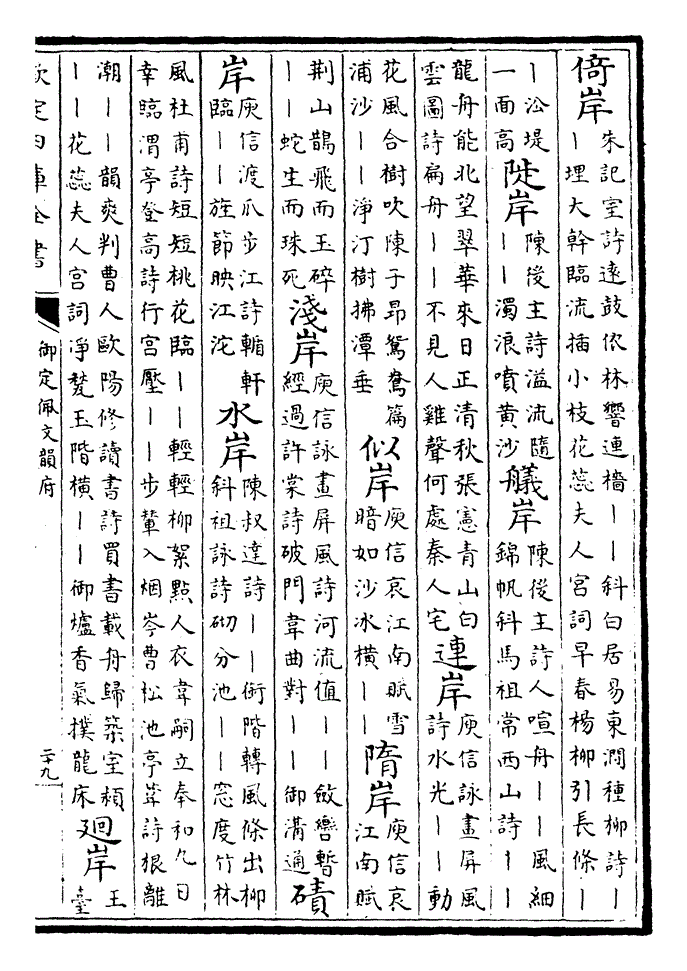 倚岸朱記室詩逺鼓依林響連檣丨丨斜白居易東澗種柳詩丨
丨埋大幹臨流插小枝花蕊夫人宫詞早春楊柳引長條丨
丨沿堤
一面高
陡岸陳後主詩溢流隨
丨丨濁浪噴黄沙
艤岸陳後主詩人喧舟丨丨風細
錦帆斜馬祖常西山詩丨丨
龍舟能北望翠華來日正清秋張憲青山白
雲圖詩扁舟丨丨不見人雞聲何處秦人宅
連岸庾信詠畫屏風
詩水光丨丨動
花風合樹吹陳子昂鴛鴦篇
浦沙丨丨淨汀樹拂潭垂
似岸庾信哀江南賦雪
暗如沙冰横丨丨
隋岸庾信哀
江南賦
荆山鵲飛而玉碎
丨丨蛇生而珠死
淺岸庾信詠畫屏風詩河流值丨丨斂轡暫
經過許棠詩破門韋曲對丨丨御溝通
磧
岸庾信渡瓜步江詩輶軒
臨丨丨旌節映江沱
水岸陳叔達詩丨丨衘階轉風條出柳
斜祖詠詩砌分池丨丨窓度竹林
風杜甫詩短短桃花臨丨丨輕輕柳絮點人衣韋嗣立奉和九日
幸臨渭亭登高詩行宫壓丨丨步輦入烟岑曹松池亭葺詩根離
潮丨丨韻爽判曹人歐陽修讀書詩買書載舟歸築室頴
丨丨花蕊夫人宫詞淨甃玉階横丨丨御爐香氣撲龍床
廻岸王
臺
欽定四庫全書
御定佩文韻府
二十九